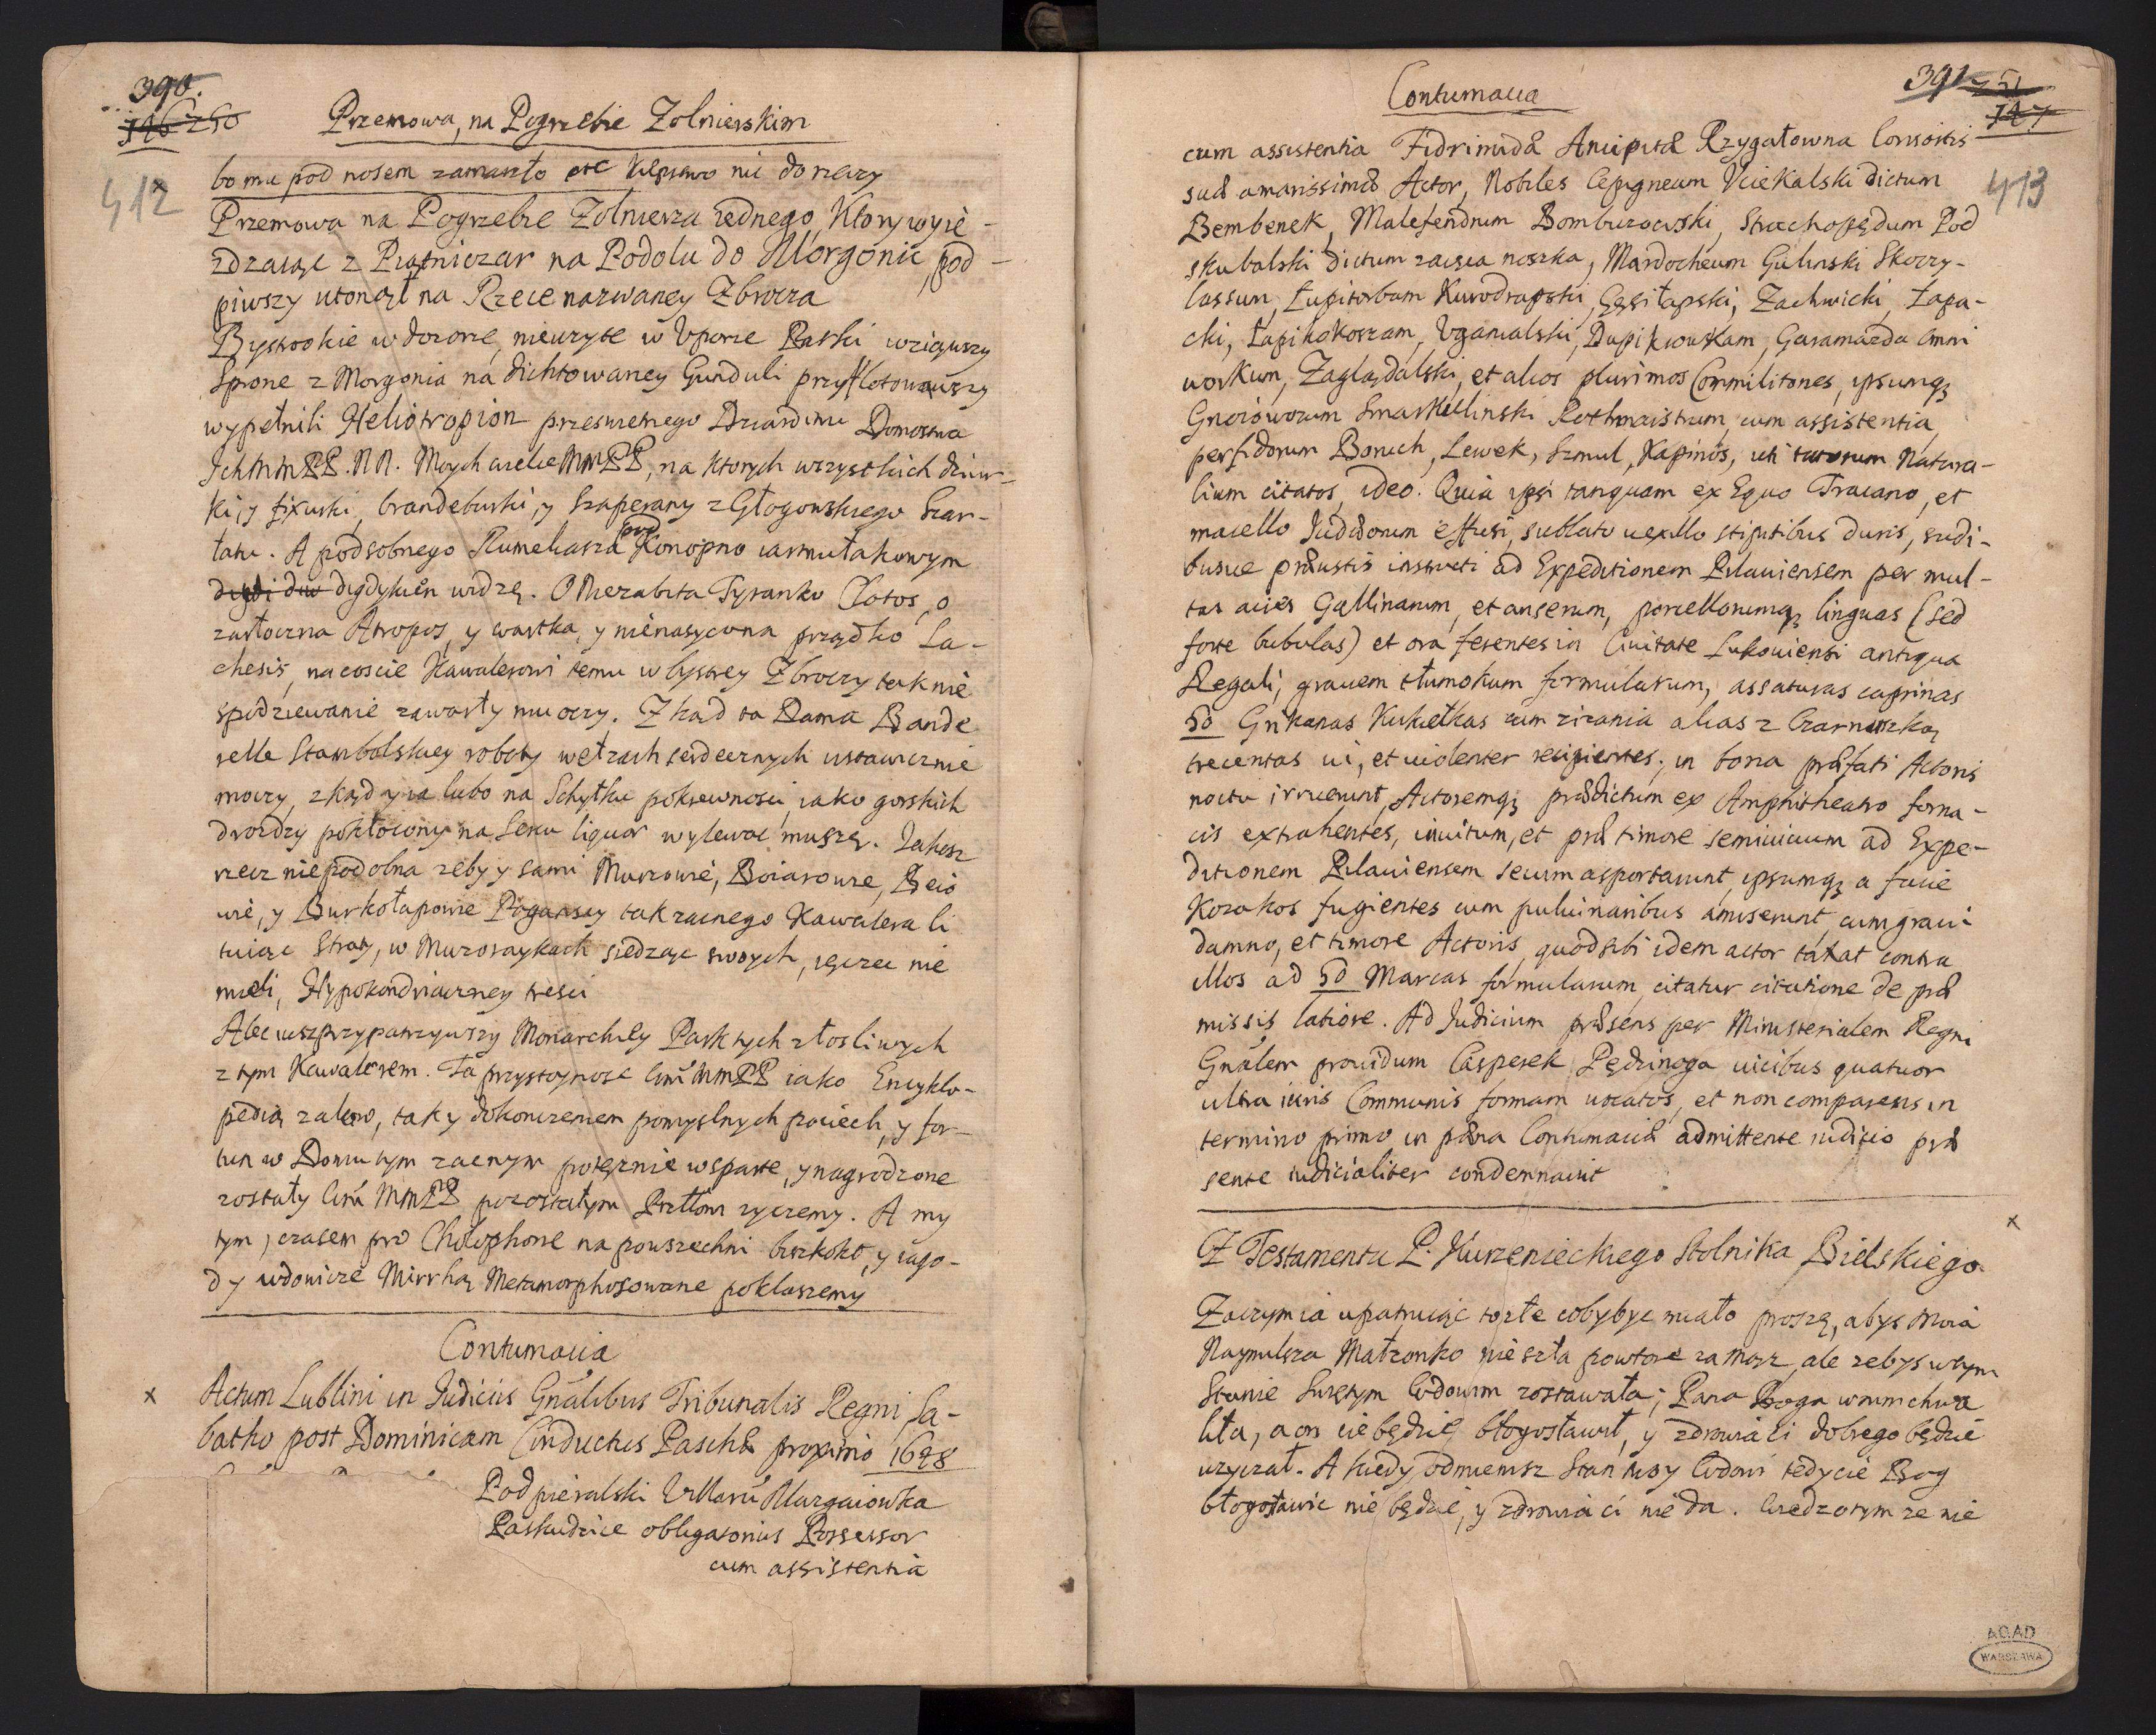 390.
146 250
Przemowa, na Pogrzebie Zolnierskim
412
bo mu pod nosem zamarzło etc Kiepstwo nie do rzeczy
Przemowa na Pogrzebie Zolnierza iednego, Ktory wyie-
zdzaiąc z Piątniczar na Podolu do Morgonic, pod-
piwszy utonął na Rzece nazwaney Zbrucza
Bystrookie w dozorze, nieuzyte w Uporze Parki wziąwszy
Spone z Morgonia na dichtowaney Gunduli przyflotowawszy
wypełnili Heliotropion przeswietnego Dziardinu Domostwa
IchMMPP. NN. Moych wielce MMPP, na ktorych wszystkich dziur-
ki, y fixurki, brandeburki, y Szaperany z Głogowskiego Szar-
łatu. A podsobnego Rumeliasza pod Konopno iarmułakowym
digdykiem widzę. O Niezabita Tyranko Clotos, o
zarłoczna Atropos, y wartka, y nienasycona prządko La-
chesis, nacoscie Kawalerowi temu w bystrey Zbroczy tak nie
spodziewanie zawarły mu oczy. Zkąd ta Dama Bande
relle Stambolskiey roboty w łzach serdecznych ustawicznie
moczy, zkąd y ia lubo na Schyłku pokrewnosci iako gorskich
drozdzy pokłocony na Sercu liquor wylewac muszę. Iakosz
rzecz niepodobna zeby y sami Murzowie, Boiarowie, Beio
wie, y Burkołapowie Pogansey tak zacnego Kawalera li
tuiąc Straty, w Murozaykach siedząc swoych, ięczec nie
mieli, Hypokondriaczney tresci
Alec iusz przypatrzywszy Monarchiey Park tych złosliwych
z tym Kawalerem. Ta przystoynosc WM MMPP iako Encyklo-
pedią zalew, tak y dokonczeniem pomyslnych pociech, y for-
tun w Domu tym zacnym potęznie wsparte, y nagrodzone
zostały WM MMPP pozostałym Prttom zyczemy. A my
tym czasem pro Cholophone na powszechni bizkokt, y iago-
dy wdowicze Mirrhą Metamorphosowane poklaszemy
Contumacia
Actum Lublini in Judiciis Gnalibus Tribunalis Regni Sa-
batho post Dominicam Conductus Paschæ proximo 1698
Podpieralski Villarū Margaiowka
Paskudzice obligatorius Possessor
cum assistentia
391 251
147
413
Contumacia
cum assistentia Fidrimidæ Ancipitæ Rzygałowna Consortis
suæ amarissimæ Actor, Nobiles Cepigneum Uciekalski dictum
Bembenek, Malefendrum Bomburzowski, Strachopędum Pod
skubalski dictum zaięcza noszka, Mardocheum Gulinski Skoczy-
lassum, Łupitorbam Kurodrapski, Gęsiłapski, Zachwicki, Łapa-
cki, Łapikokoszam, Uganialski, Dupikrowskam, Garamazda omni
uorkum, Zaglądalski, et alios plurimos Commilitones, ipsumq3
Gnoioworum Smarkielinski Rothmaistrum, cum assistentia
perfidorum Boruch, Lewek, Szmul, Kapinos, uti tutorum Natura-
lium citatos, ideo. Quia ipsi tanquam ex Equo Troiano, et
macello Judæorum effusi, sublato uexillo stipitibus duris, sudi-
busue præustis instructi ad Expeditionem Pilauiensem per mul-
tas acies Gallinarum, et anserum, porcellorumq3 linguas (sed
forte bubulas) et ora ferentes in Ciuitate Lukouiensi antiqua
Regali, grauem tłumokum formularum, assaturas caprinas
50 Grikanas Kukiełkas cum zizania alias z Czarnuszką
trecentas ui, et uiolenter recipientes, in bona præfati Actoris
noctu irruerunt, Actoremq3 prædictum ex Amphitheatro forna-
cis extrahentes, inuitum, et præ timore semiuiuum ad Expe-
ditionem Pilauiensem secum asportarunt, ipsumq3 a facie
Kozakos fugientes cum puluinaribus amiserunt, cum graui
damno, et timore Actoris, quod sibi idem actor taxat contra
illos ad 50 Marcas formularum, citatur citatione de præ
missis latiore. Ad Judicium præsens per Ministerialem Regni
Gnalem prouidum Casperek Pędzinoga uicibus quatuor
ultra iuris Communis formam uocatos, et non comparens in
termino primo in pæna Contumaciæ admittente iudicio præ
sente iudicialiter condemnauit
Z Testamentu P. Kurzenieckiego Stolnika Bielskiego
Zaczym ia upatruiąc to zle coby byc miało proszę, abys Moia
Naymilsza Małzonko nie szła powtore za mąsz, ale zebys w tym
Stanie Swiętym Wdowim zostawała; Pana Boga w nim chwa
liła, a on cie będzie błogosławił, y zdrowia ci dobrego będzie
uzyczał. A kiedy odmienisz Stan twoy Wdowi tedy cie Bog
błogosławic nie będzie, y zdrowia ci nie da. Wiedz o tym ze nie
AGAD
WARSZAWA